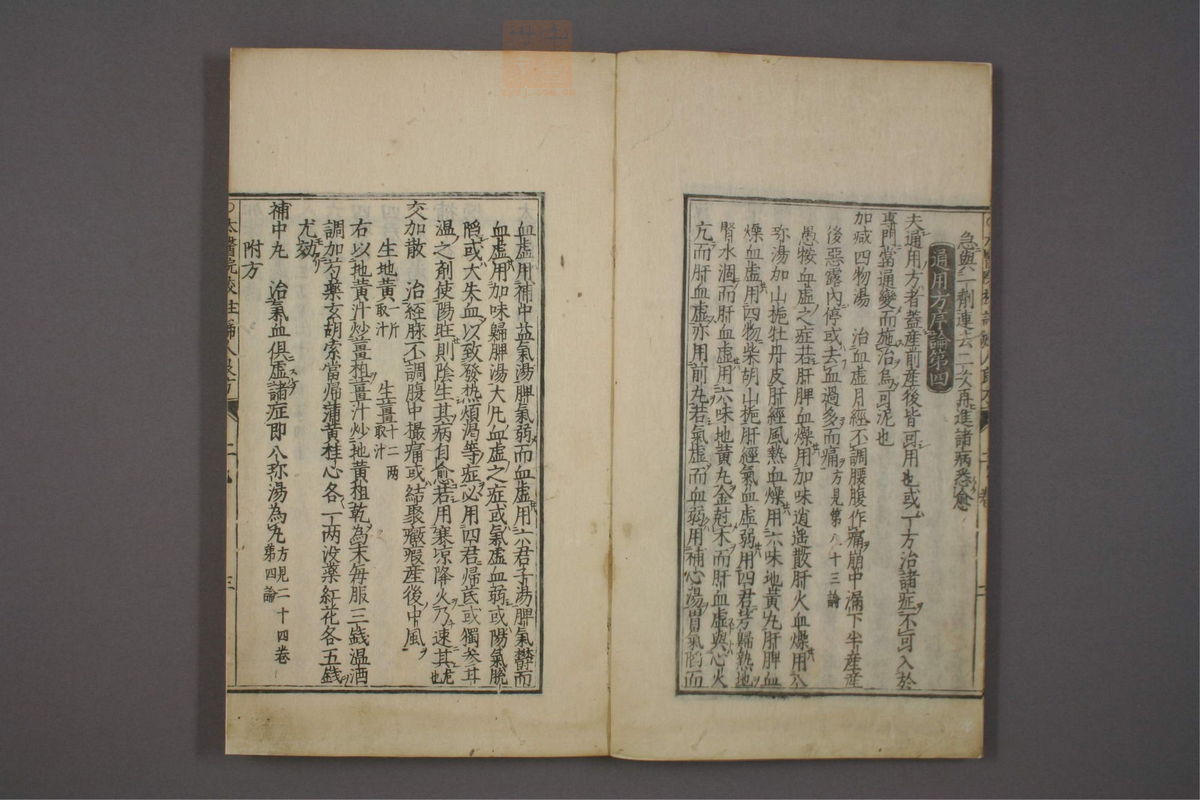 急與一劑連去二次再進諸病悉愈
通用方序論第四
夫通用方者蓋産前産後皆可用也或一方治諸症不可入於
專門當通變而施治烏可泥也
加咸四物湯　治血虛月經不調腰腹作痛崩中漏下半産産
後惡露內停或去血過多而痛方見第八十三論
愚按血虛之症若肝脾血燥用加味逍遙散肝火血燥用八
珎湯加山梔牡丹皮肝經風熱血燥用六味地黄丸肝脾血
燥血虛用四物柴胡山梔肝經氣血虛弱用四君芎歸熟地
腎水涸而肝血虛用六味地黄丸金尅木而肝血虛與心火
亢而肝血虛亦用前丸若氣虛而血弱用補心湯胃氣弱而
血虛用補中益氣湯脾氣弱而血虛用六君子湯脾氣鬱而
血虛用加味歸脾湯大凡血虛之症或氣虛血弱或陽氣脫
陷或大失血以致發熱煩渴等症必用四君歸芪或獨參甘
温之劑使陽旺則陰生其病自愈若用寒凉降火乃速其危也
交加散　治經脉不調腹中撮痛或結聚癥瘕産後中風
生地黄一斤取汁　生薑十二兩取汁
右以地黄汁炒薑柤薑汁炒地黄柤乾為末每服三錢温酒
調加芍藥玄胡索當帰蒲黄桂心各一两没藥紅花各五錢
尤効
附方
補中丸　治氣血俱虛諸症即八珎湯為丸方見二十四卷第四論
○太醫院校註婦人良方　二卷　三